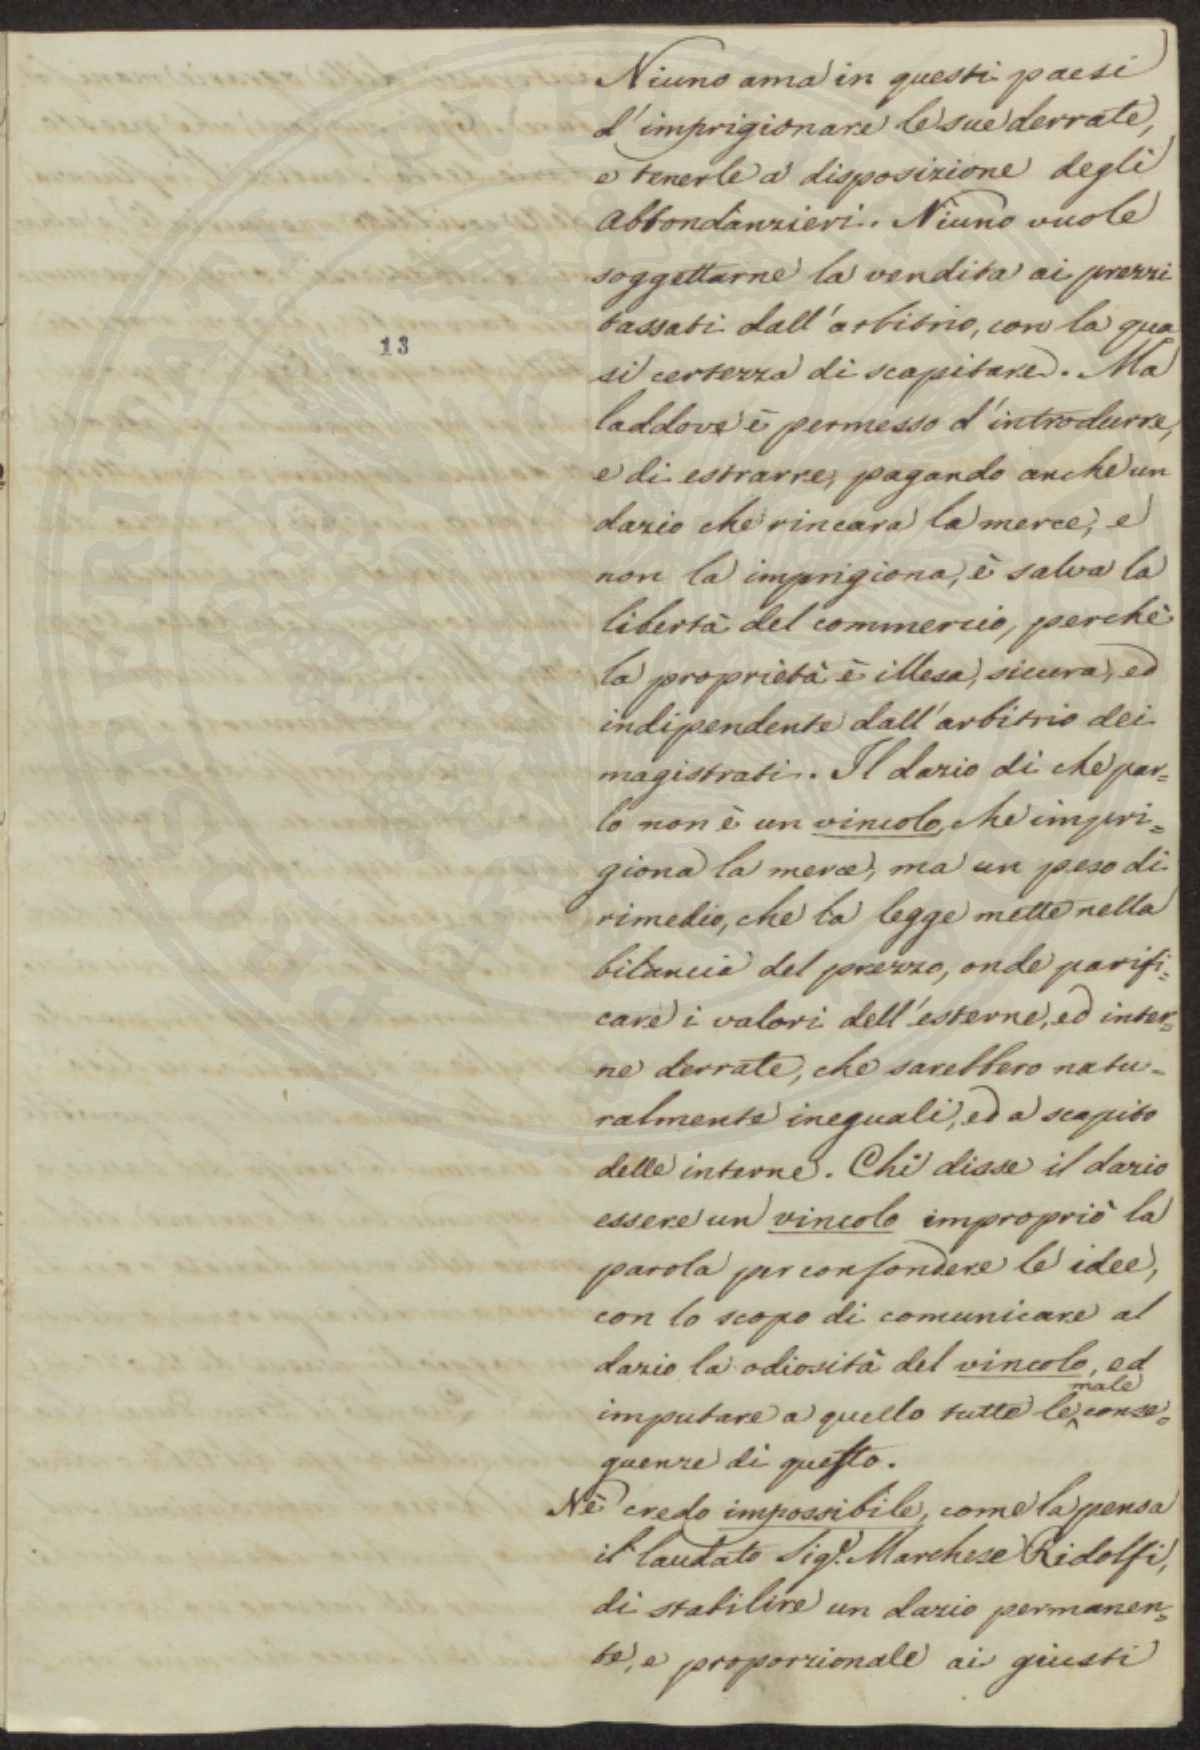 Niuno ama in questi paesi
d'imprigionare le sue derrate,
e tenerle a disposizione degli
abbondanzieri. Niuno vuole
soggettarne la vendita ai prezzi
tassati dall'arbitrio, con la qua
si certezza di scapitare. Ma
laddove è permesso d'introdurre,
e di estrarre, pagando anche un
dazio che rincara la merce, e
non la imprigiona, è salva la
libertà del commercio, perchè
la proprietà è illesa, sicura, ed
indipendente dall'arbitrio dei
magistrati. Il dazio di che par=
lo non è un vincolo, che impri=
giona la merce, ma un peso di
rimedio, che la legge mette nella
bilancia del prezzo, onde parifi=
care i valori dell'esterne, ed inter=
ne derrate, che sarebbero natu=
ralmente ineguali, ed a scapito
delle interne. Chi disse il dazio
essere un vincolo impropriò la
parola per confondere le idee,
con lo scopo di comunicare al
dazio la odiosità del vincolo, ed
imputare a quello tutte le male conse=
guenze di questo.
Nè credo impossibile, come la pensa
il laudato Sigr. Marchese Ridolfi,
di stabilire un dazio permanen=
te, e proporzionale ai giusti
13